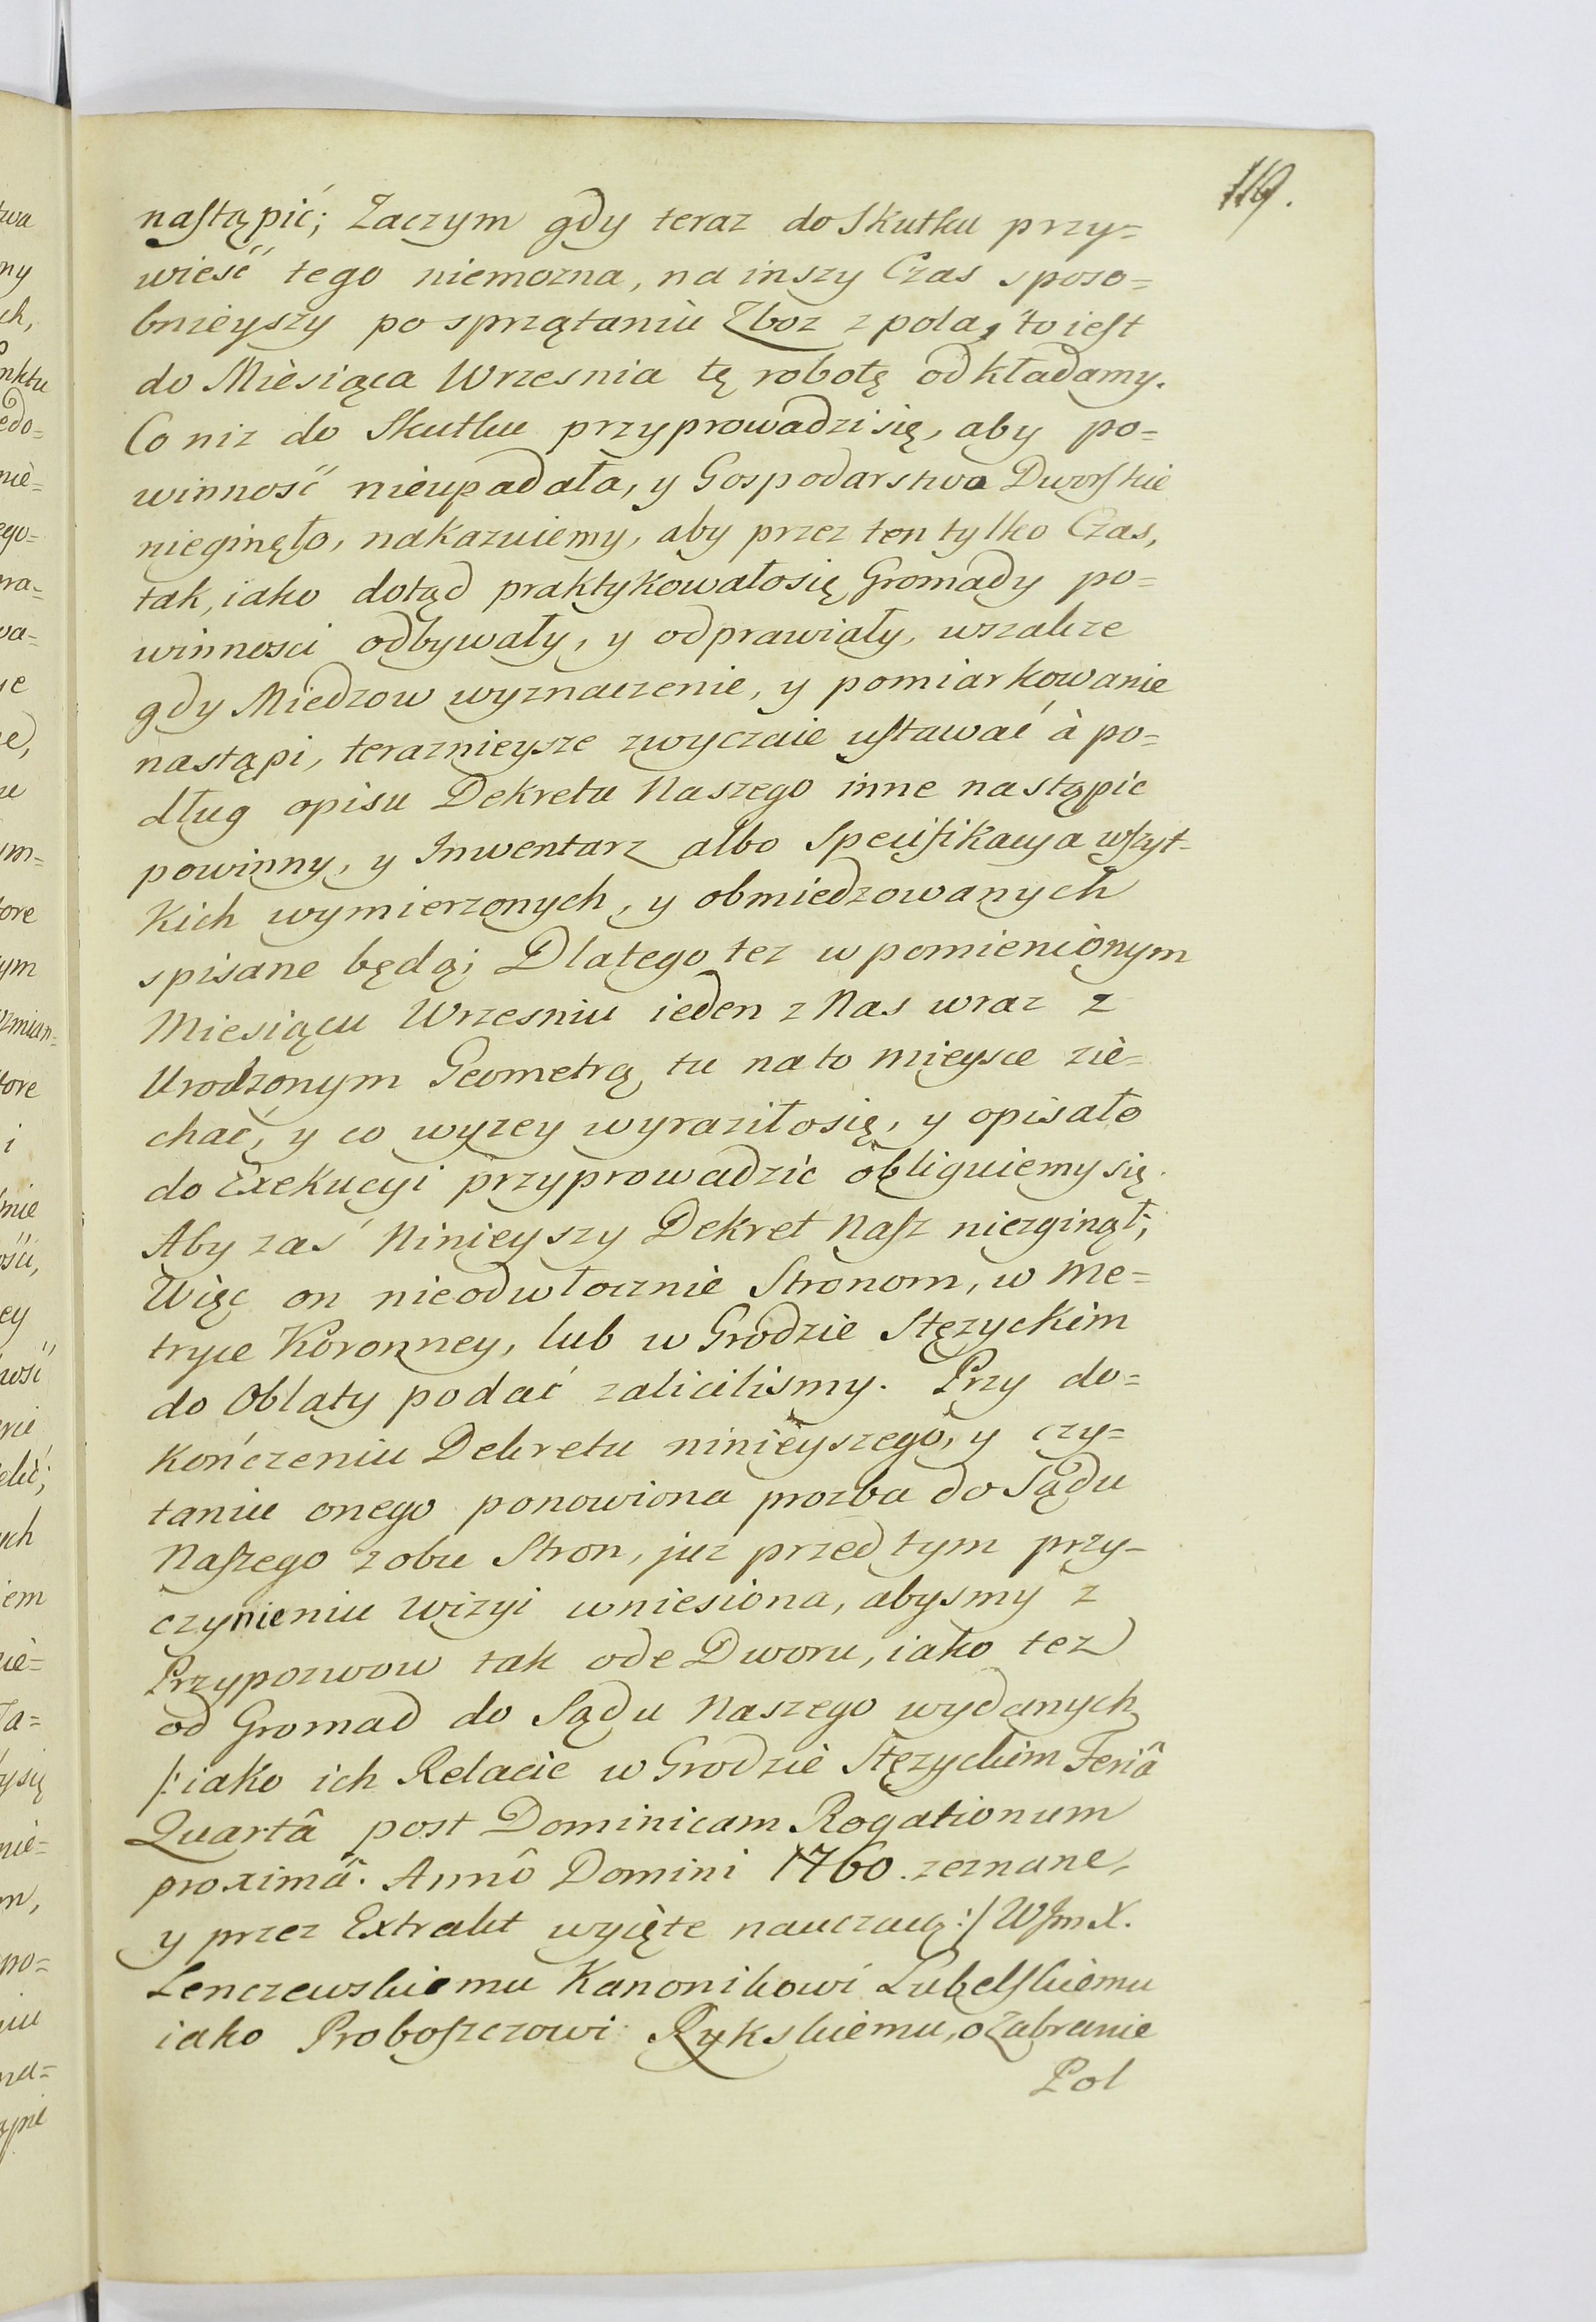 119.
nastąpić; Zaczym gdy teraz do Skutku przy=
wieść tego niemozna, na inszy Czas sposo=
bnieyszy po sprzątaniu Zboz z pola, to iest
do Miesiąca Wrzesnia tę robotę odkładamy.
Co niz do Skutku przyprowadzi się, aby po=
winność nieupadała, y Gospodarstwo Dworskie
nieginęło, nakazuiemy, aby przez ten tylko Czas,
tak, iako dotąd praktykowało się Gromady po=
winnosci odbywały, y odprawiały, wszakze
gdy Miedzow wyznaczenie, y pomiarkowanie
nastąpi, teraznieysze zwyczaie ustawać à po=
dług opisu Dekretu Naszego inne nastąpic
powinny, y Inwentarz albo Specifikacya wszyt=
kich wymierzonych, y obmiedzowanych
spisane będą; Dlatego tez w pomienionym
Miesiącu Wrzesniu ieden z Nas wraz z
Urodzonym Geometrą tu na to mieysce zie=
chać, y co wyzey wyraziło się, y opisało
do Exekucyi przyprowadzić obliguiemy się.
Aby zaś Ninieyszy Dekret Nasz niezginął;
Więc on nieodwłocznie Stronom, w Me=
tryce Koronney, lub w Grodzie Stęzyckim
do Oblaty podać zalicilismy. Przy do=
kończeniu Dekretu ninieyszego, y czy=
taniu onego ponowiona prozba do Sądu
Naszego z obu Stron, juz przed tym przy=
czynieniu Wizyi wniesiona, abysmy z
Przypozwow tak ode Dworu, iako tez
od Gromad do Sądu Naszego wydanych
/: iako ich Relacie w Grodzie Stęzyckim Feriâ
Quartâ post Dominicam Rogationum
proximâ. Annô Domini 1760. zeznane,
y przez Extrakt wyięte nauczaią :/ WJmX.
Lenczewskiemu Kanonikowi Lubelskiemu
iako Proboszczowi Rykskiemu, o Zabranie
Pol